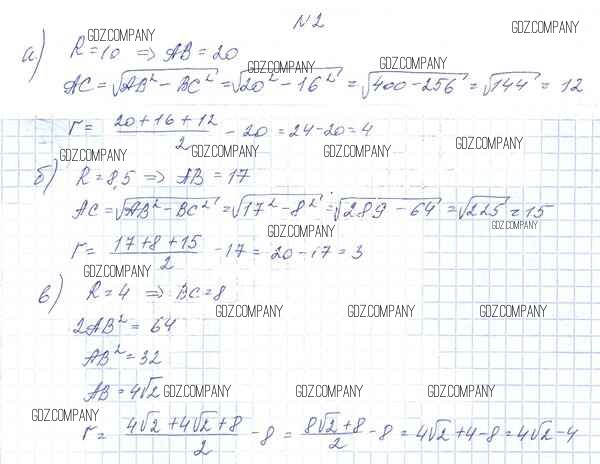 N2
GDZ.COMPANY GDZ.COMPANY
а) R=10 ⇒ AB=20
GDZ.COMPANY GDZ.COMPANY
AC=√(AB²-BC²)=√(20²-16²)=√(400-256)=√144=12
r= (20+16+12)/2 - 20=24-20=4
GDZ.COMPANY GDZ.COMPANY GDZ.COMPANY GDZ.COMPANY
б) R=8,5 ⇒ AB=17
AC=√(AB²-BC²)=√(17²-8²)=√(289-64)=√225=15
GDZ.COMPANY GDZ.COMPANY
r= (17+8+15)/2 - 17=20-17=3
GDZ.COMPANY
в) R=4 ⇒ BC=8
GDZ.COMPANY GDZ.COMPANY GDZ.COMPANY
2AB²=64
AB²=32
AB=4√2
GDZ.COMPANY GDZ.COMPANY GDZ.COMPANY
GDZ.COMPANY
r= (4√2+4√2+8)/2 - 8 = (8√2+8)/2 - 8=4√2+4-8=4√2-4